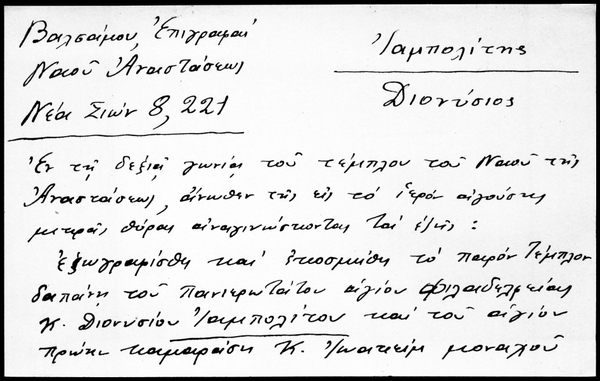 Βαλσάμου, Ἐπιγραφαί
Ναοῦ Ἀναστάσεως
Νέα Σιών 8, 221
Ἰαμπολίτης
Διονύσιος
Ἐν τῇ δεξιᾷ γωνίᾳ τοῦ τέμπλου τοῦ Ναοῦ τῆς
Ἀναστάσεως, ἄνωθεν τῆς εἰς τὸ ἱερὸν ἀγούσης
μικρᾶς θύρας ἀναγινώσκονται τὰ ἑξῆς :
Ἐζωγραφίσθη καὶ ἐκοσμήθη τὸ παρὸν Τέμπλον
δαπάνῃ τοῦ πανιερωτάτου ἁγίου Φιλαδελφείας
Κ. Διονυσίου Ἰαμπολίτου καὶ τοῦ ἁγίου
πρώην καμαράση Κ. Ἰωακεὶμ μοναχοῦ